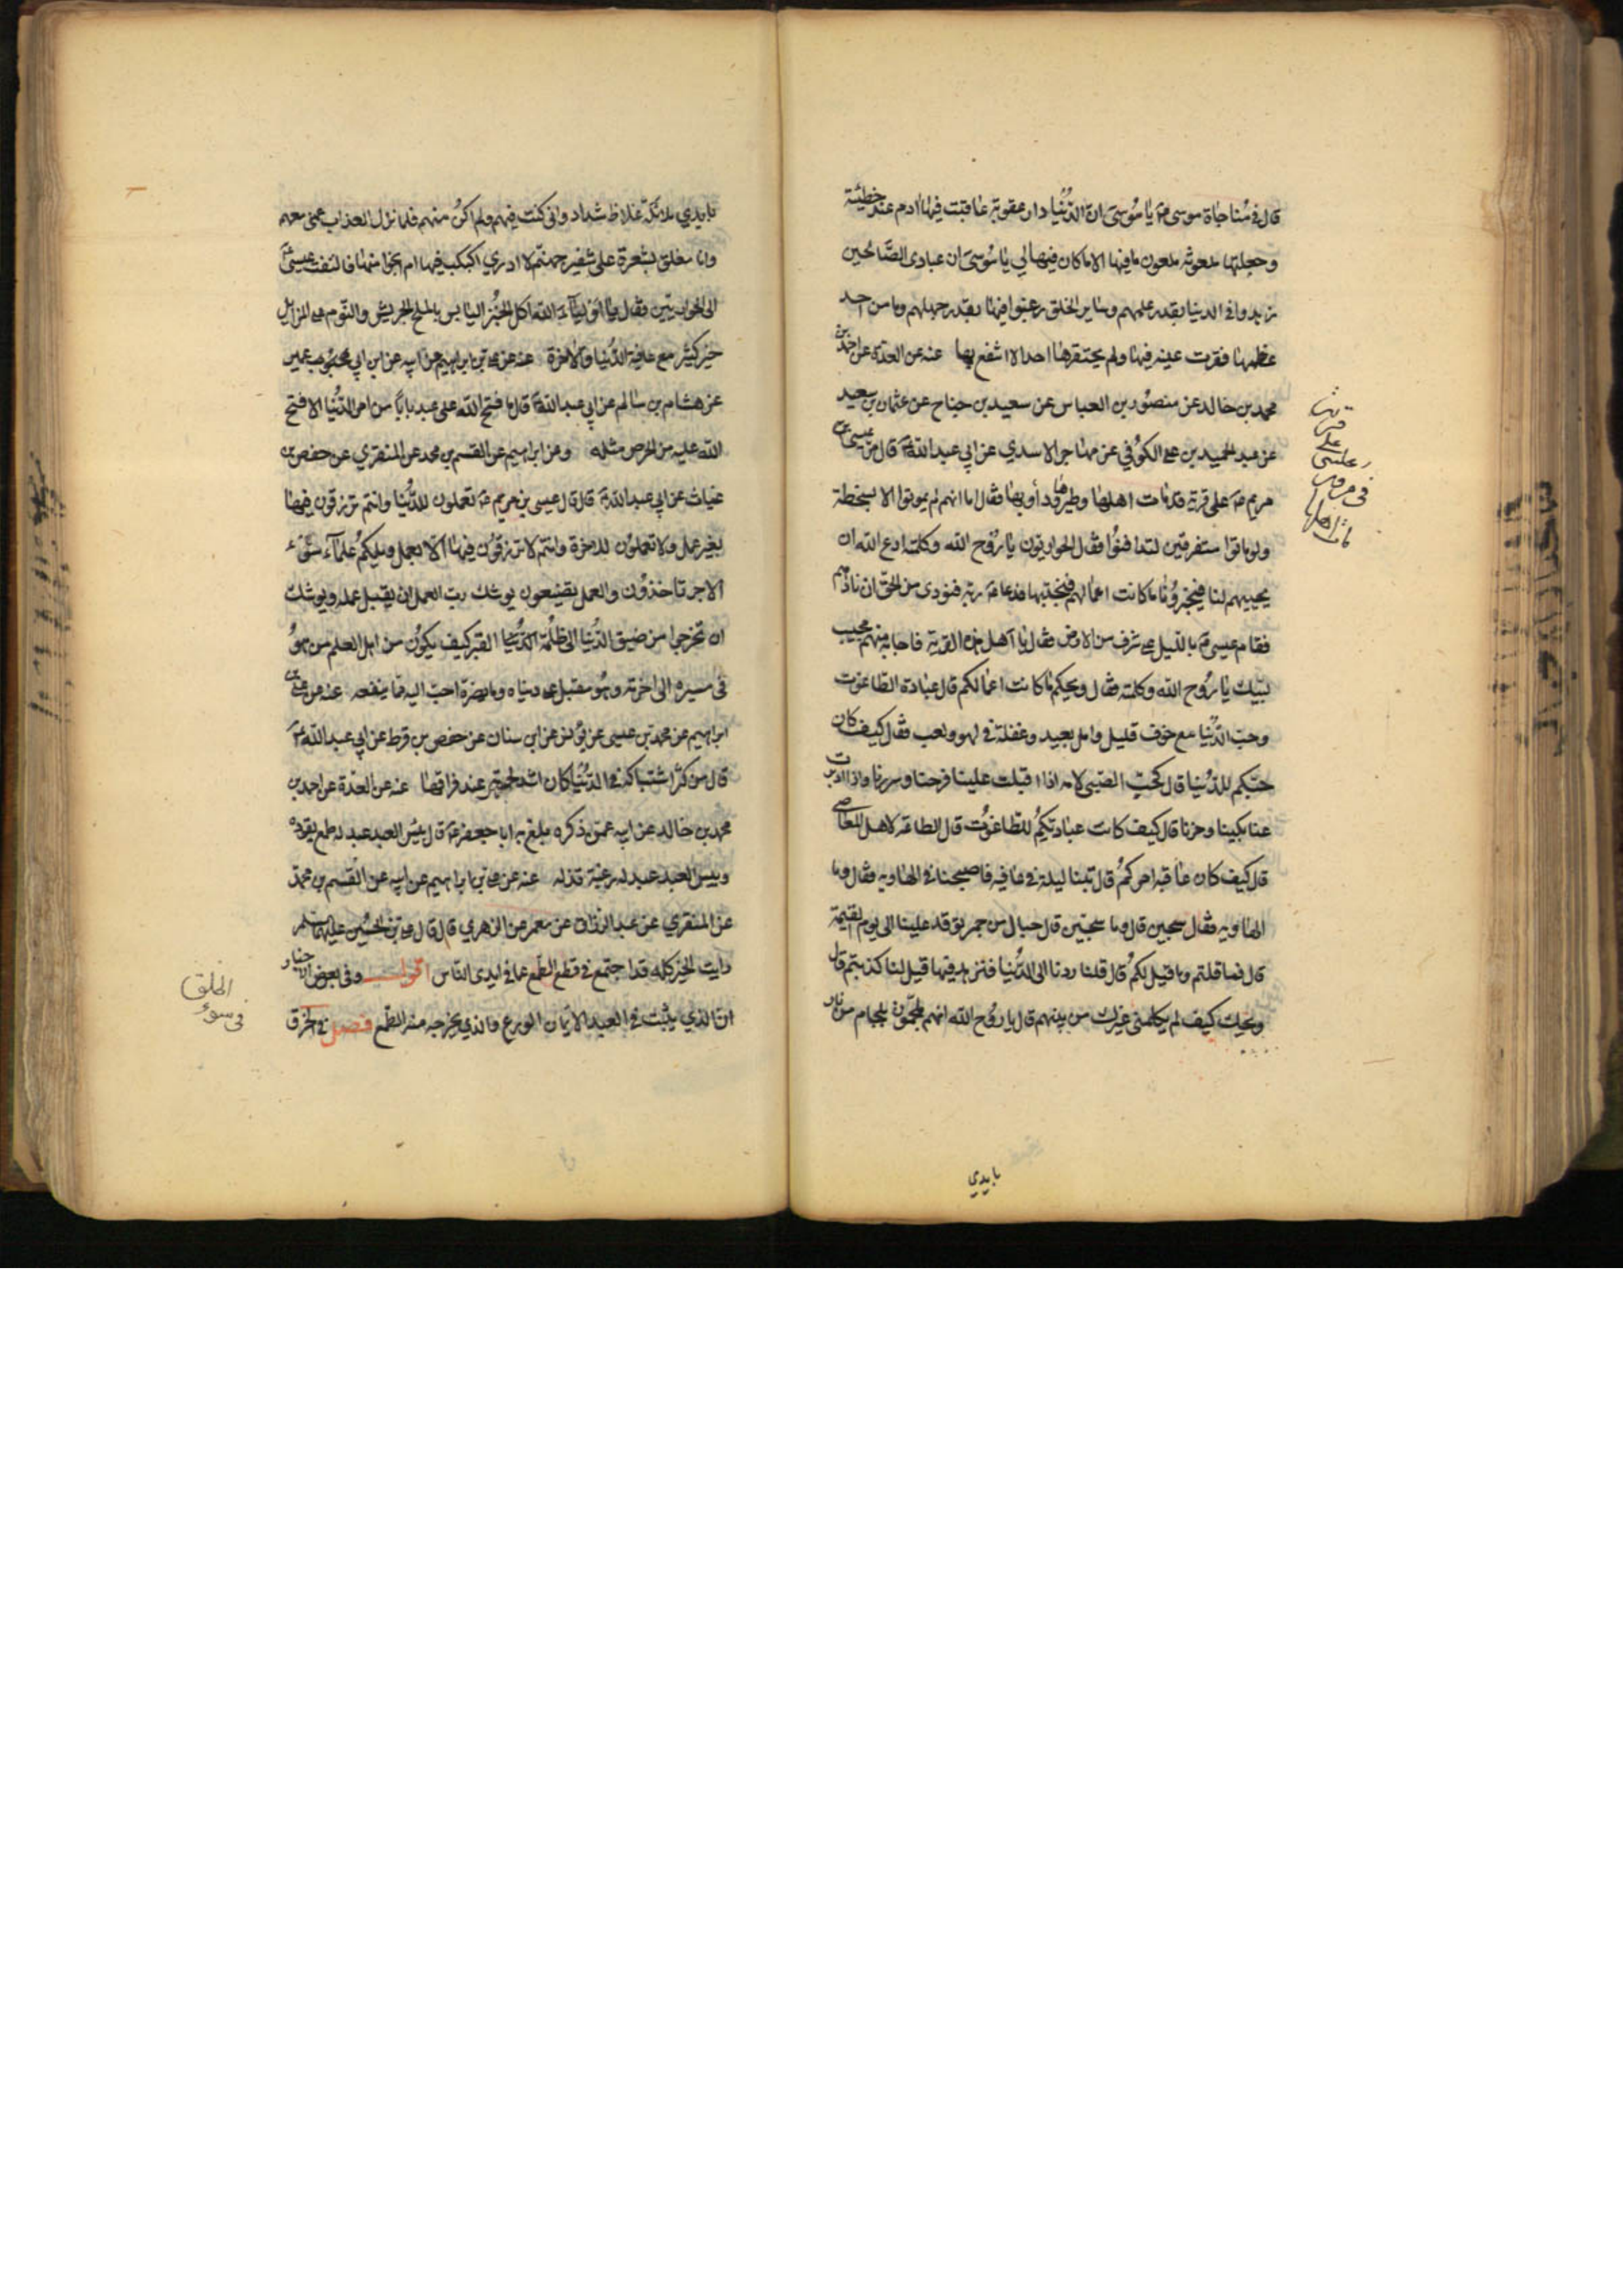 قال في مناجاة موسى ع يا موسى ان الدنيا دار عقوبة عاقبت فيها ادم عند خطيئته
وجعلتها ملعونة ملعون ما فيها الا ما كان فيها لي يا موسى ان عبادي الصالحين
زهدوا في الدنيا بقدر علمهم وساير الخلق رغبوا فيها بقدر جهلهم وما من احد
عظمها فقرت عينه فيها ولم يحتقرها احد الا انتفع بها عنه عن العدة عن احمد بن
محمد بن خالد عن منصور بن العباس عن سعيد بن جناح عن عثمان بن سعيد
عن عبد الحميد بن علي الكوفي عن مهاجر الاسدي عن ابي عبد الله ع قال مر عيسى بن
مريم ع على قرية قد مات اهلها وطيرها ودوابها فقال اما انهم لم يموتوا الا بسخطة
ولو ماتوا متفرقين لتدافنوا فقال الحواريون يا روح الله وكلمته ادع الله ان
يحييهم لنا فيخبرونا ما كانت اعمالهم فنجتنبها فدعا ع ربه فنودي من الجو ان نادهم
فقام عيسى ع بالليل على شرف من الارض فقال يا اهل هذه القرية فاجابه منهم مجيب
لبيك يا روح الله وكلمته فقال ويحكم ما كانت اعمالكم قال عبادة الطاغوت
وحب الدنيا مع خوف قليل وامل بعيد وغفلة في لهو ولعب فقال كيف كان
حبكم للدنيا قال كحب الصبي لامه اذا اقبلت علينا فرحنا وسررنا واذا ادبرت
عنا بكينا وحزنا قال كيف كانت عبادتكم للطاغوت قال الطاعة لاهل المعاصي
قال كيف كان عاقبة امركم قال بتنا ليلة في عافية فاصبحنا في الهاوية فقال وما
الهاوية فقال سجين قال وما سجين قال جبال من جمر توقد علينا الى يوم القيمة
قال فما قلتم وما قيل لكم قال قلنا ردنا الى الدنيا فنزهد فيها قيل لنا كذبتم قال
ويحك كيف لم يكلمني غيرك من بينهم قال يا روح الله انهم ملجمون بلجام من نار
بايدي
قرية
على
عيسى
في مرور
مات اهلها
بايدي ملائكة غلاظ شداد واني كنت فيهم ولم اكن منهم فلما نزل العذاب عمني معهم
وانا معلق بشعرة على شفير جهنم لا ادري اكبكب فيها ام انجو منها فالتفت عيسى ع
الى الحواريين فقال يا اولياء الله اكل الخبز اليابس بالملح الجريش والنوم على المزابل
خير كثير مع عافية الدنيا والاخرة عنه عن علي بن ابراهيم عن ابيه عن ابن ابي عمير
عن هشام بن سالم عن ابي عبد الله ع قال ما فتح الله على عبد بابا من امر الدنيا الا فتح
الله عليه من الحرص مثله وعن ابراهيم عن القسم بن محمد عن المنقري عن حفص بن
غياث عن ابي عبد الله ع قال قال عيسى بن مريم ع تعملون للدنيا وانتم ترزقون فيها
بغير عمل ولا تعملون للاخرة وانتم لا ترزقون فيها الا بعمل ويلكم علماء سوء
الاجر تاخذون والعمل تضيعون يوشك رب العمل ان يقبل عمله ويوشك
ان تخرجوا من ضيق الدنيا الى ظلمة القبر كيف يكون من اهل العلم من هو
في مسيره الى اخرته وهو مقبل على دنياه وما يضره احب اليه مما ينفعه عنه عن علي بن
ابراهيم عن محمد بن عيسى عن يونس عن ابن سنان عن حفص بن قرط عن ابي عبد الله ع
قال من كثر اشتباكه في الدنيا كان اشد لحسرته عند فراقها عنه عن العدة عن احمد بن
محمد بن خالد عن ابيه عمن ذكره بلغ به ابا جعفر ع قال بئس العبد عبد له طمع يقوده
وبئس العبد عبد له رغبة تذله عنه عن علي بن ابراهيم عن ابيه عن القسم بن محمد
عن المنقري عن عبد الرزاق عن معمر عن الزهري قال قال علي بن الحسين عليهما السلم
رايت الخير كله قد اجتمع في قطع الطمع عما في ايدي الناس اقول وفي بعض الاخبار
ان الذي يثبت في العبد الايمان الورع والذي يخرجه منه الطمع فصل في الخرق
الخلق
في سوء